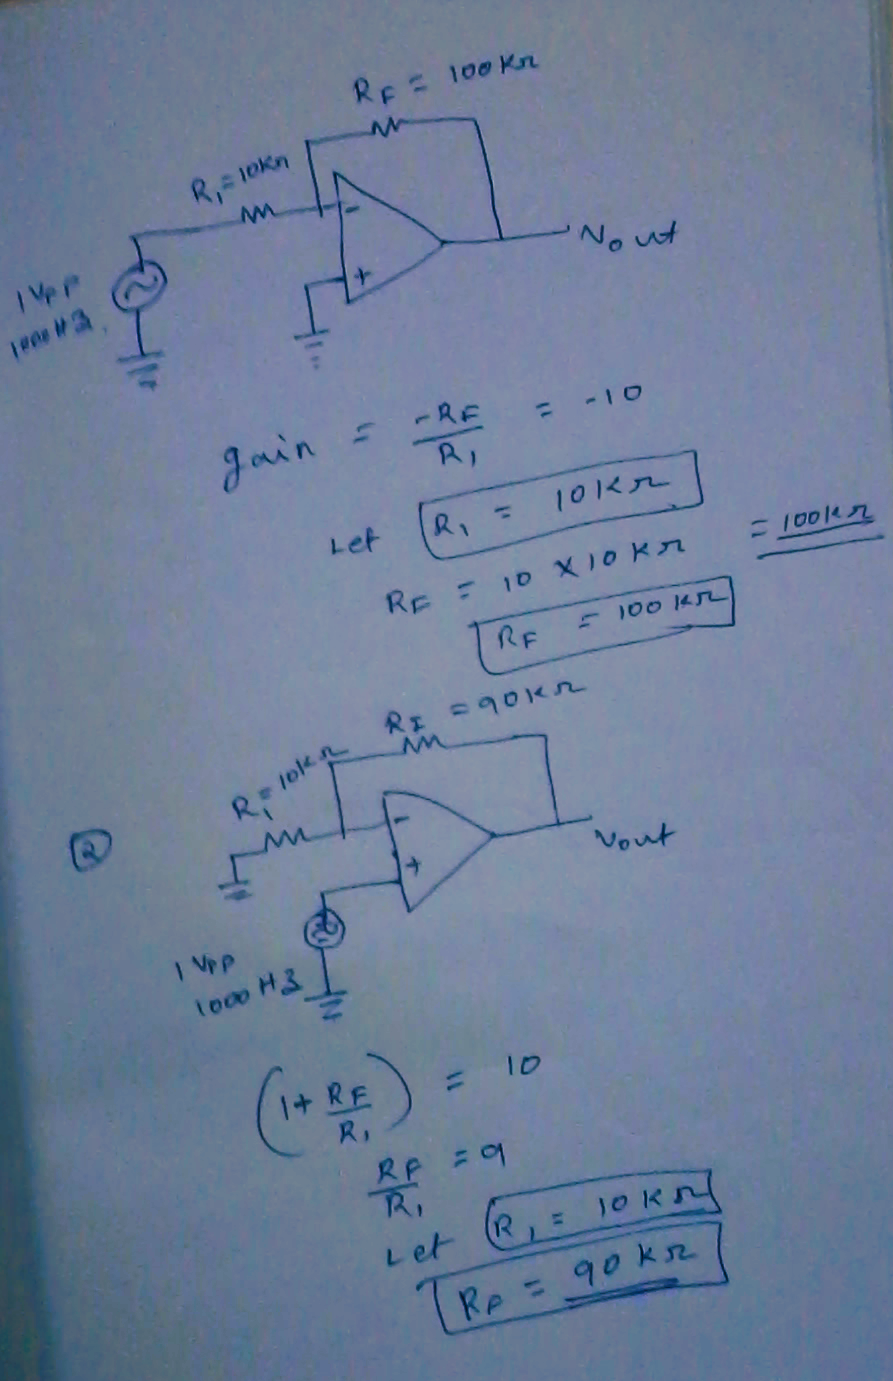 RF = 100 KΩ
R1 = 10KΩ
-
+
Vout
1 Vpp
1000 Hz.
gain = -RF/R1 = -10
Let R1 = 10 KΩ
RF = 10 X 10 KΩ = 100KΩ
RF = 100 KΩ
RF = 90KΩ
R1 = 10KΩ
②
-
+
Vout
1 Vpp
1000 Hz
(1+ RF/R1) = 10
RF/R1 = 9
Let R1 = 10 KΩ
RF = 90 KΩ